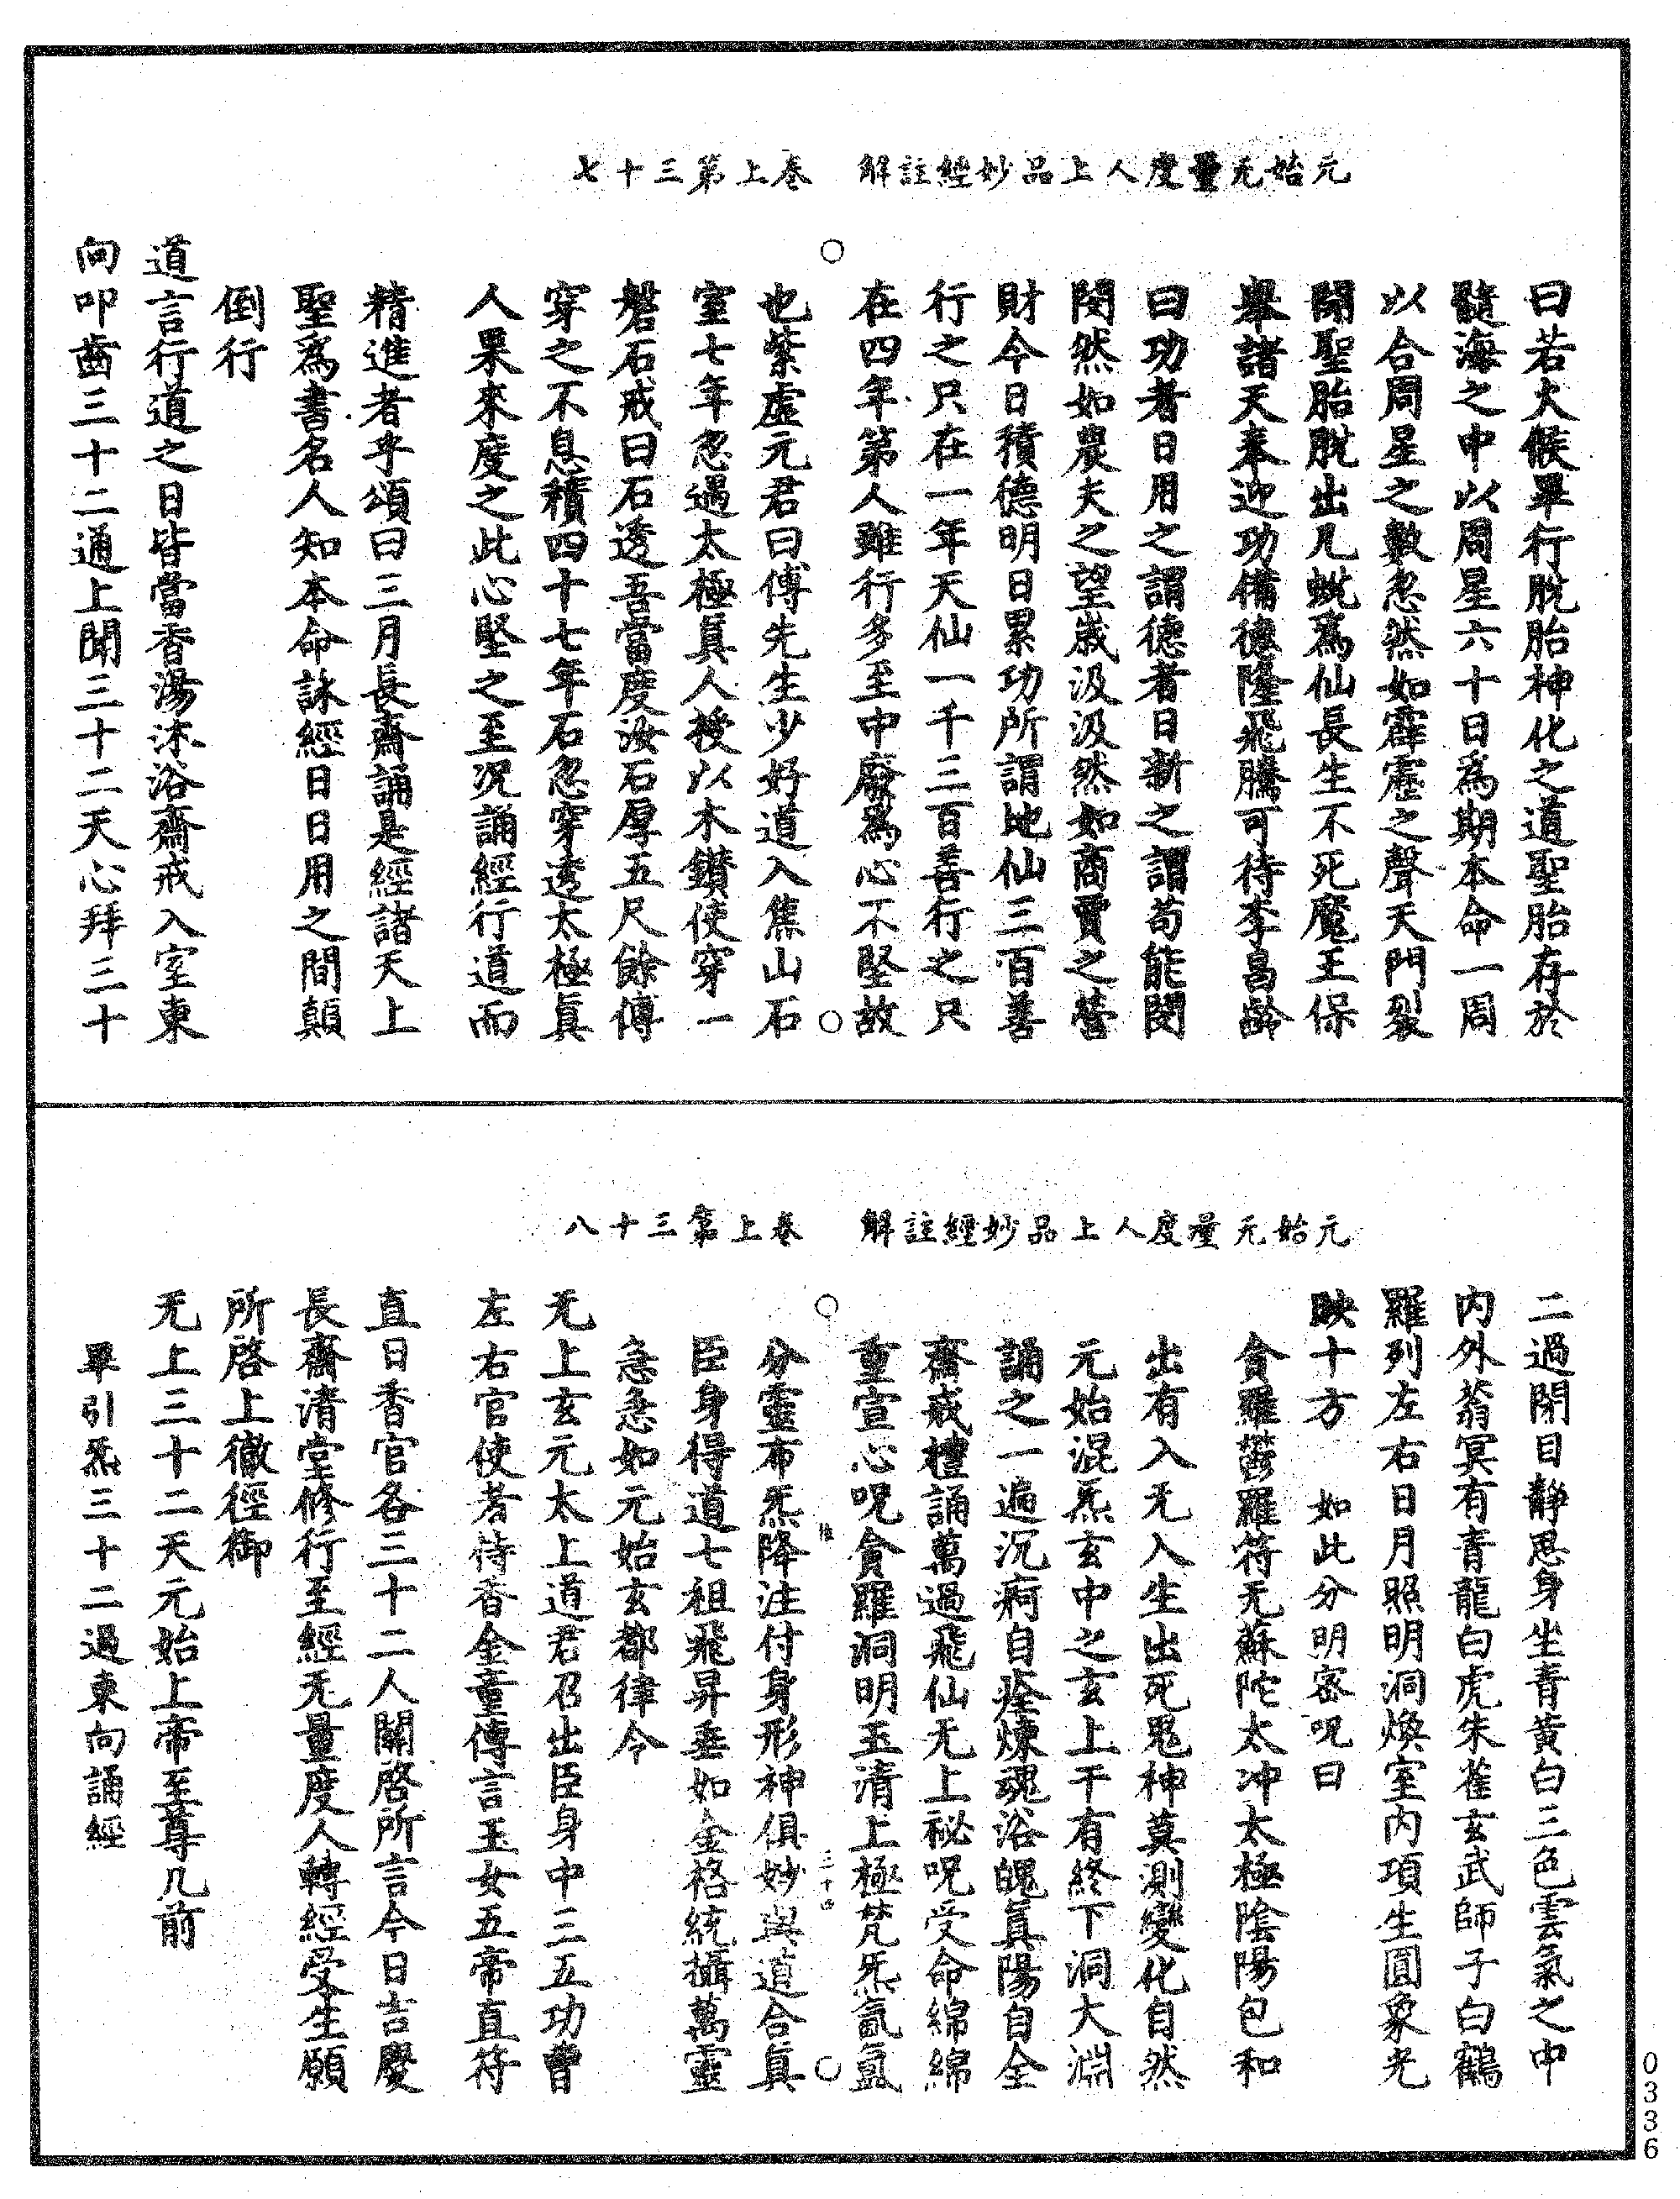 元始无量度人上品妙經註解　卷上第三十七
曰若火候畢行脫胎神化之道聖胎存於
髓海之中以周星六十日為期本命一周
以合周星之數忽然如霹靂之聲天門裂
開聖胎脫出凡蛻為仙長生不死魔王保
舉諸天奉迎功備德隆飛騰可待李昌齡
曰功者日用之謂德者日新之謂苟能閔
閔然如農夫之望歲汲汲然如商賈之營
財今日積德明日累功所謂地仙三百善
行之只在一年天仙一千三百善行之只
在四年第人雖行多至中廢為心不堅故
也紫虛元君曰傅先生少好道入焦山石
室七年忽遇太極真人授以木鑽使穿一
磐石戒曰石透吾當度汝石厚五尺餘傅
穿之不息積四十七年石忽穿透太極真
人果來度之此心堅之至況誦經行道而
精進者乎頌曰三月長齋誦是經諸天上
聖為書名人知本命詠經日日用之間顛
倒行
道言行道之日皆當香湯沐浴齋戒入室東
向叩齒三十二通上聞三十二天心拜三十
元始无量度人上品妙經註解　卷上第三十八
二過閉目靜思身坐青黃白三色雲氣之中
內外蓊冥有青龍白虎朱雀玄武師子白鶴
羅列左右日月照明洞煥室內項生圓象光
映十方　如此分明密呪曰
貪羅欝羅符无蘇陀太冲太極陰陽包和
出有入无入生出死鬼神莫測變化自然
元始混炁玄中之玄上干有終下洞大淵
誦之一遍沉痾自痊煉魂浴魄真陽自全
齋戒禮誦萬過飛仙无上祕呪受命綿綿
重宣心呪貪羅洞明玉清上極梵炁氤氳
三十四
分靈布炁降注付身形神俱妙與道合真
臣身得道七祖飛昇垂如金格統攝萬靈
急急如元始玄都律令
无上玄元太上道君召出臣身中三五功曹
左右官使者侍香金童傳言玉女五帝直符
直日香官各三十二人關啓所言今日吉慶
長齋清堂修行至經无量度人轉經受生願
所啓上徹徑御
无上三十二天元始上帝至尊几前
畢引炁三十二過東向誦經
0336